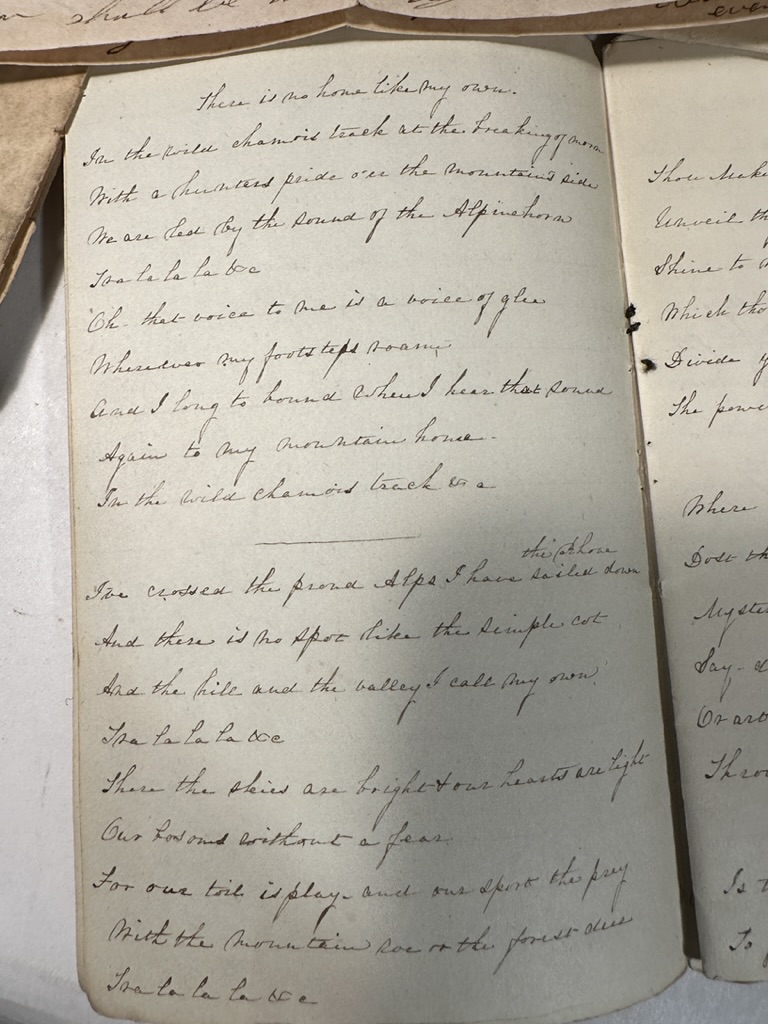 shall be
There is no home like my own.
In the wild chamois track at the breaking of morn
With a hunters pride o'er the mountains side
We are led by the sound of the Alpine horn
Tra la la la &c
Oh that voice to me is a voice of glee
Wherever my footsteps roam
And I long to bound when I hear that sound
Again to my mountain home -
In the wild chamois track &c
the Rhone
I've crossed the proud Alps I have sailed down
And there is no spot like the simple cot
And the hill and the valley I call my own
Tra la la la &c
There the skies are bright & our hearts are light
Our bosoms without a fear
For our toil is play - and our sport the prey
With the mountain roe or the forest deer
Tra la la la &c
Thou
Unveil
Shine to
Which
Divide
The
Where
Dost
Say -
Or
Is
To